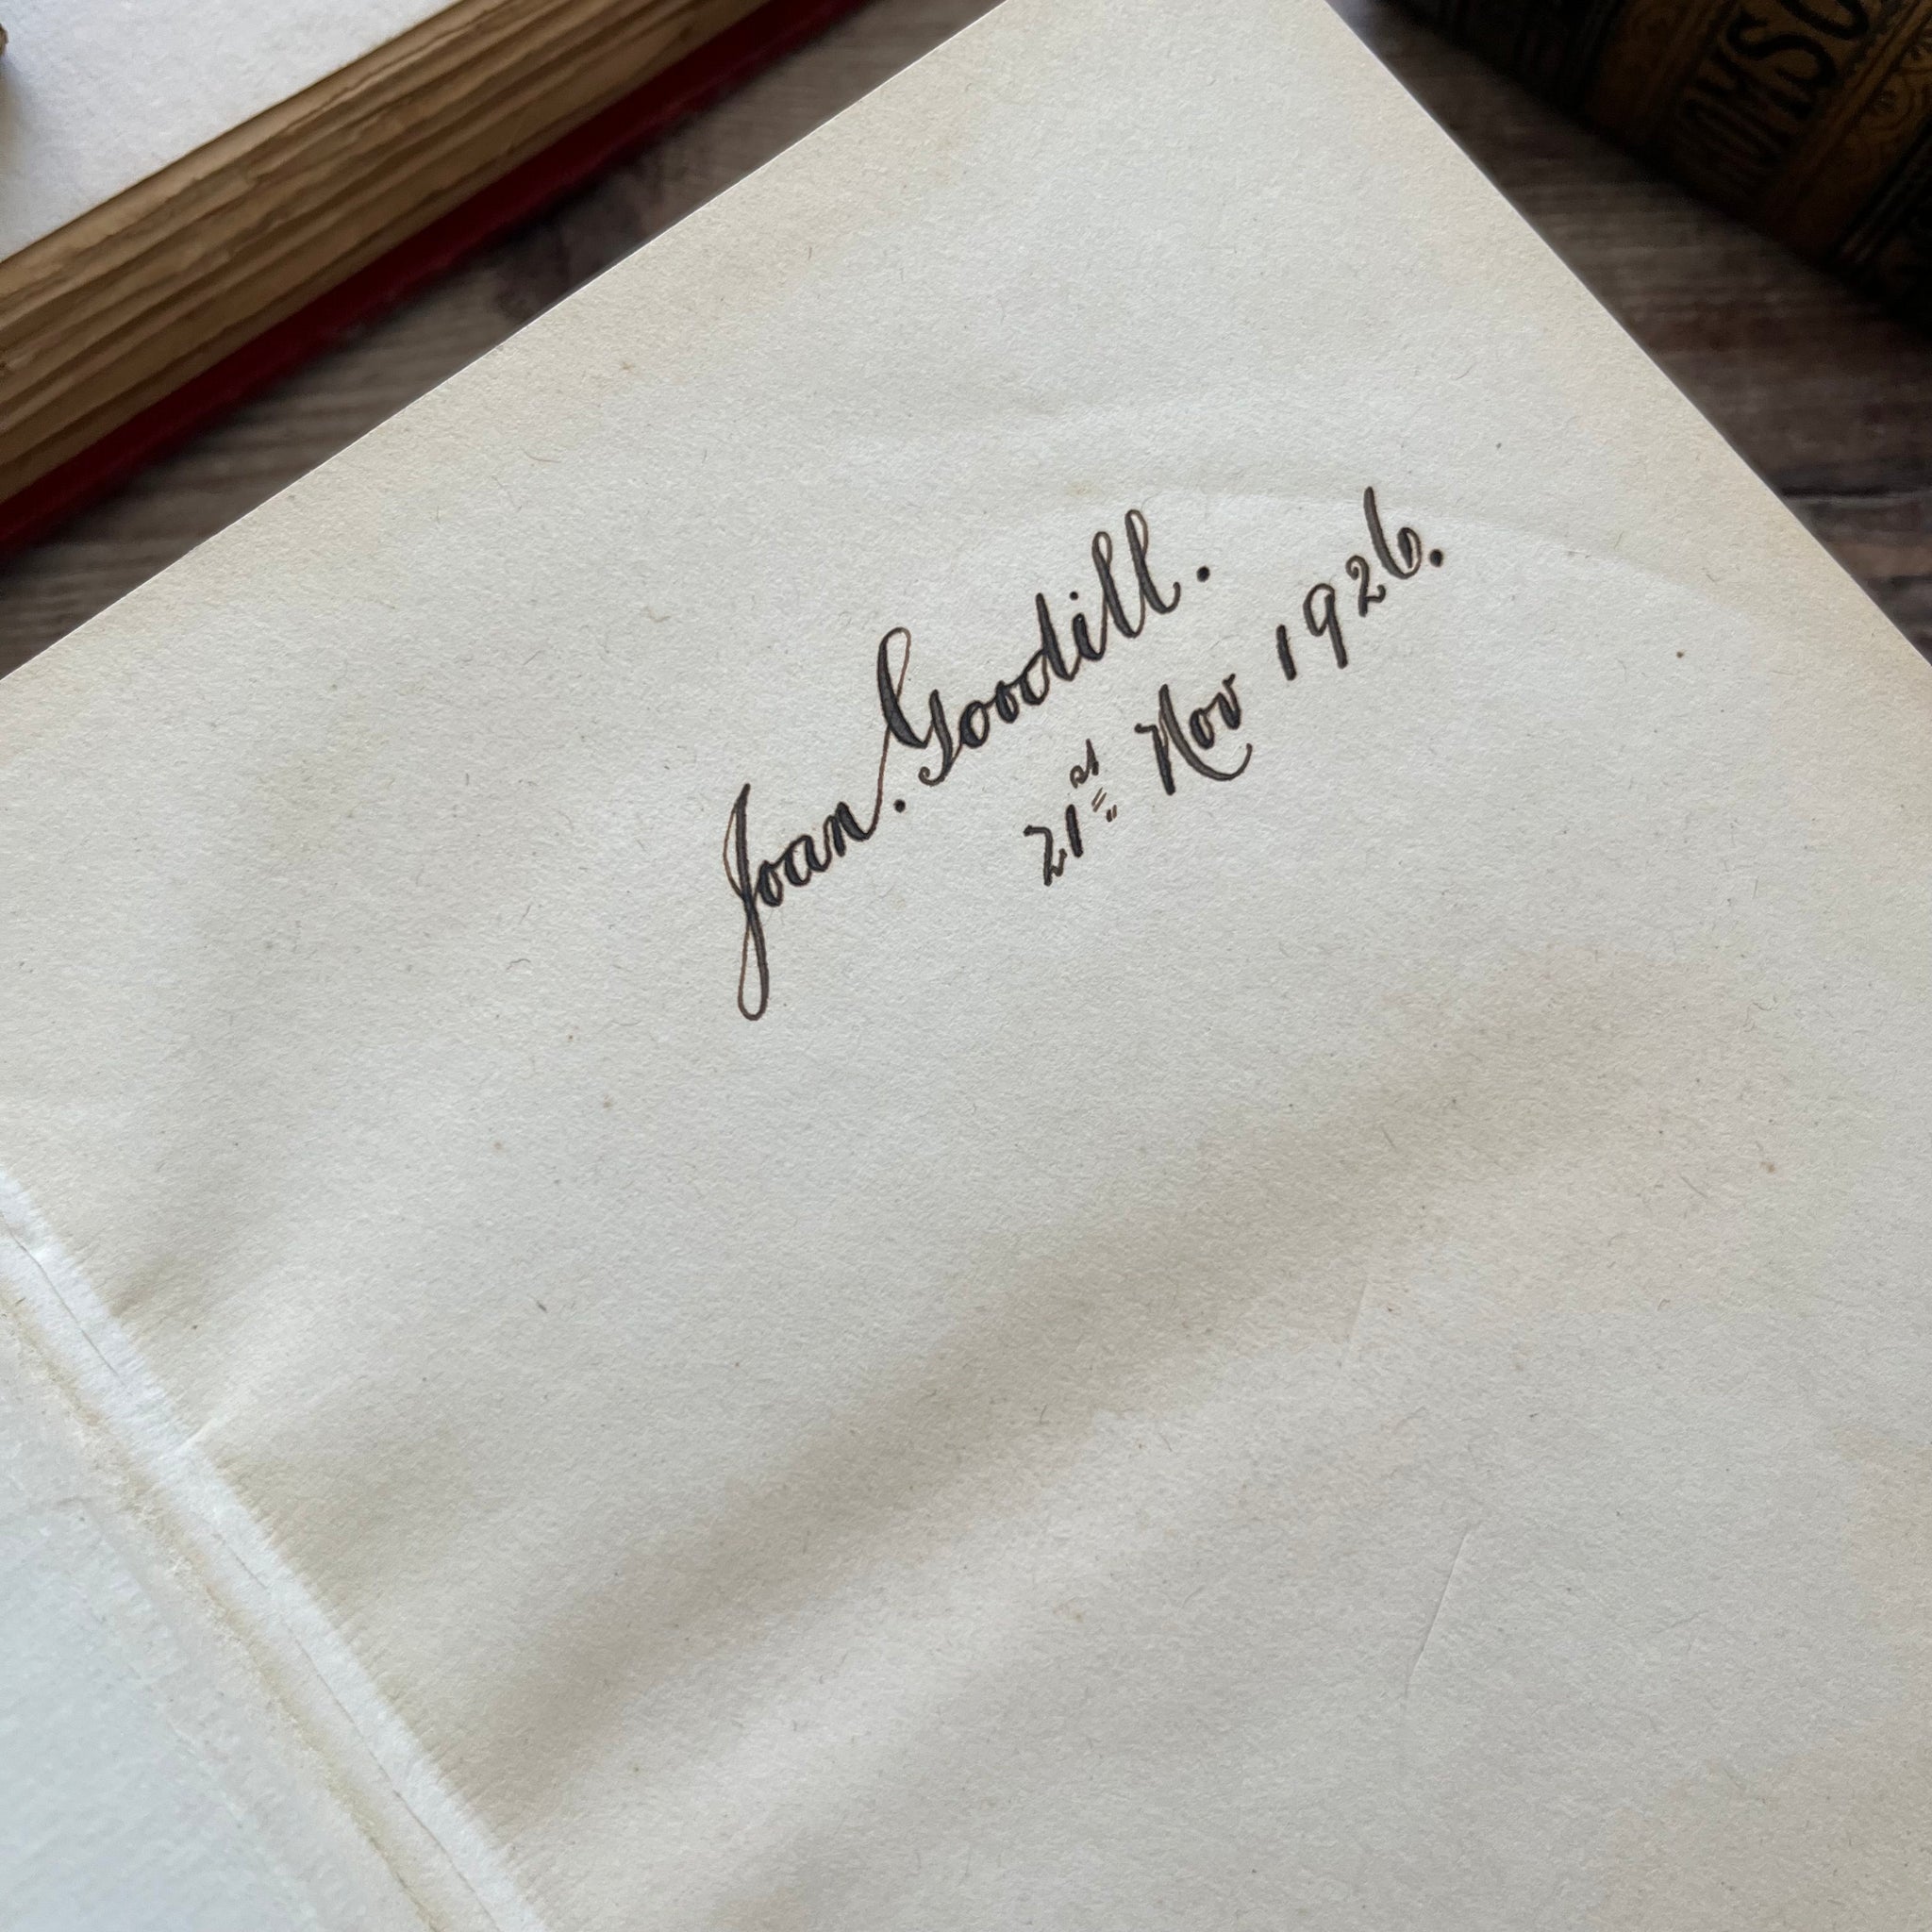 Joan. Goodill.
21st Nov 1926.